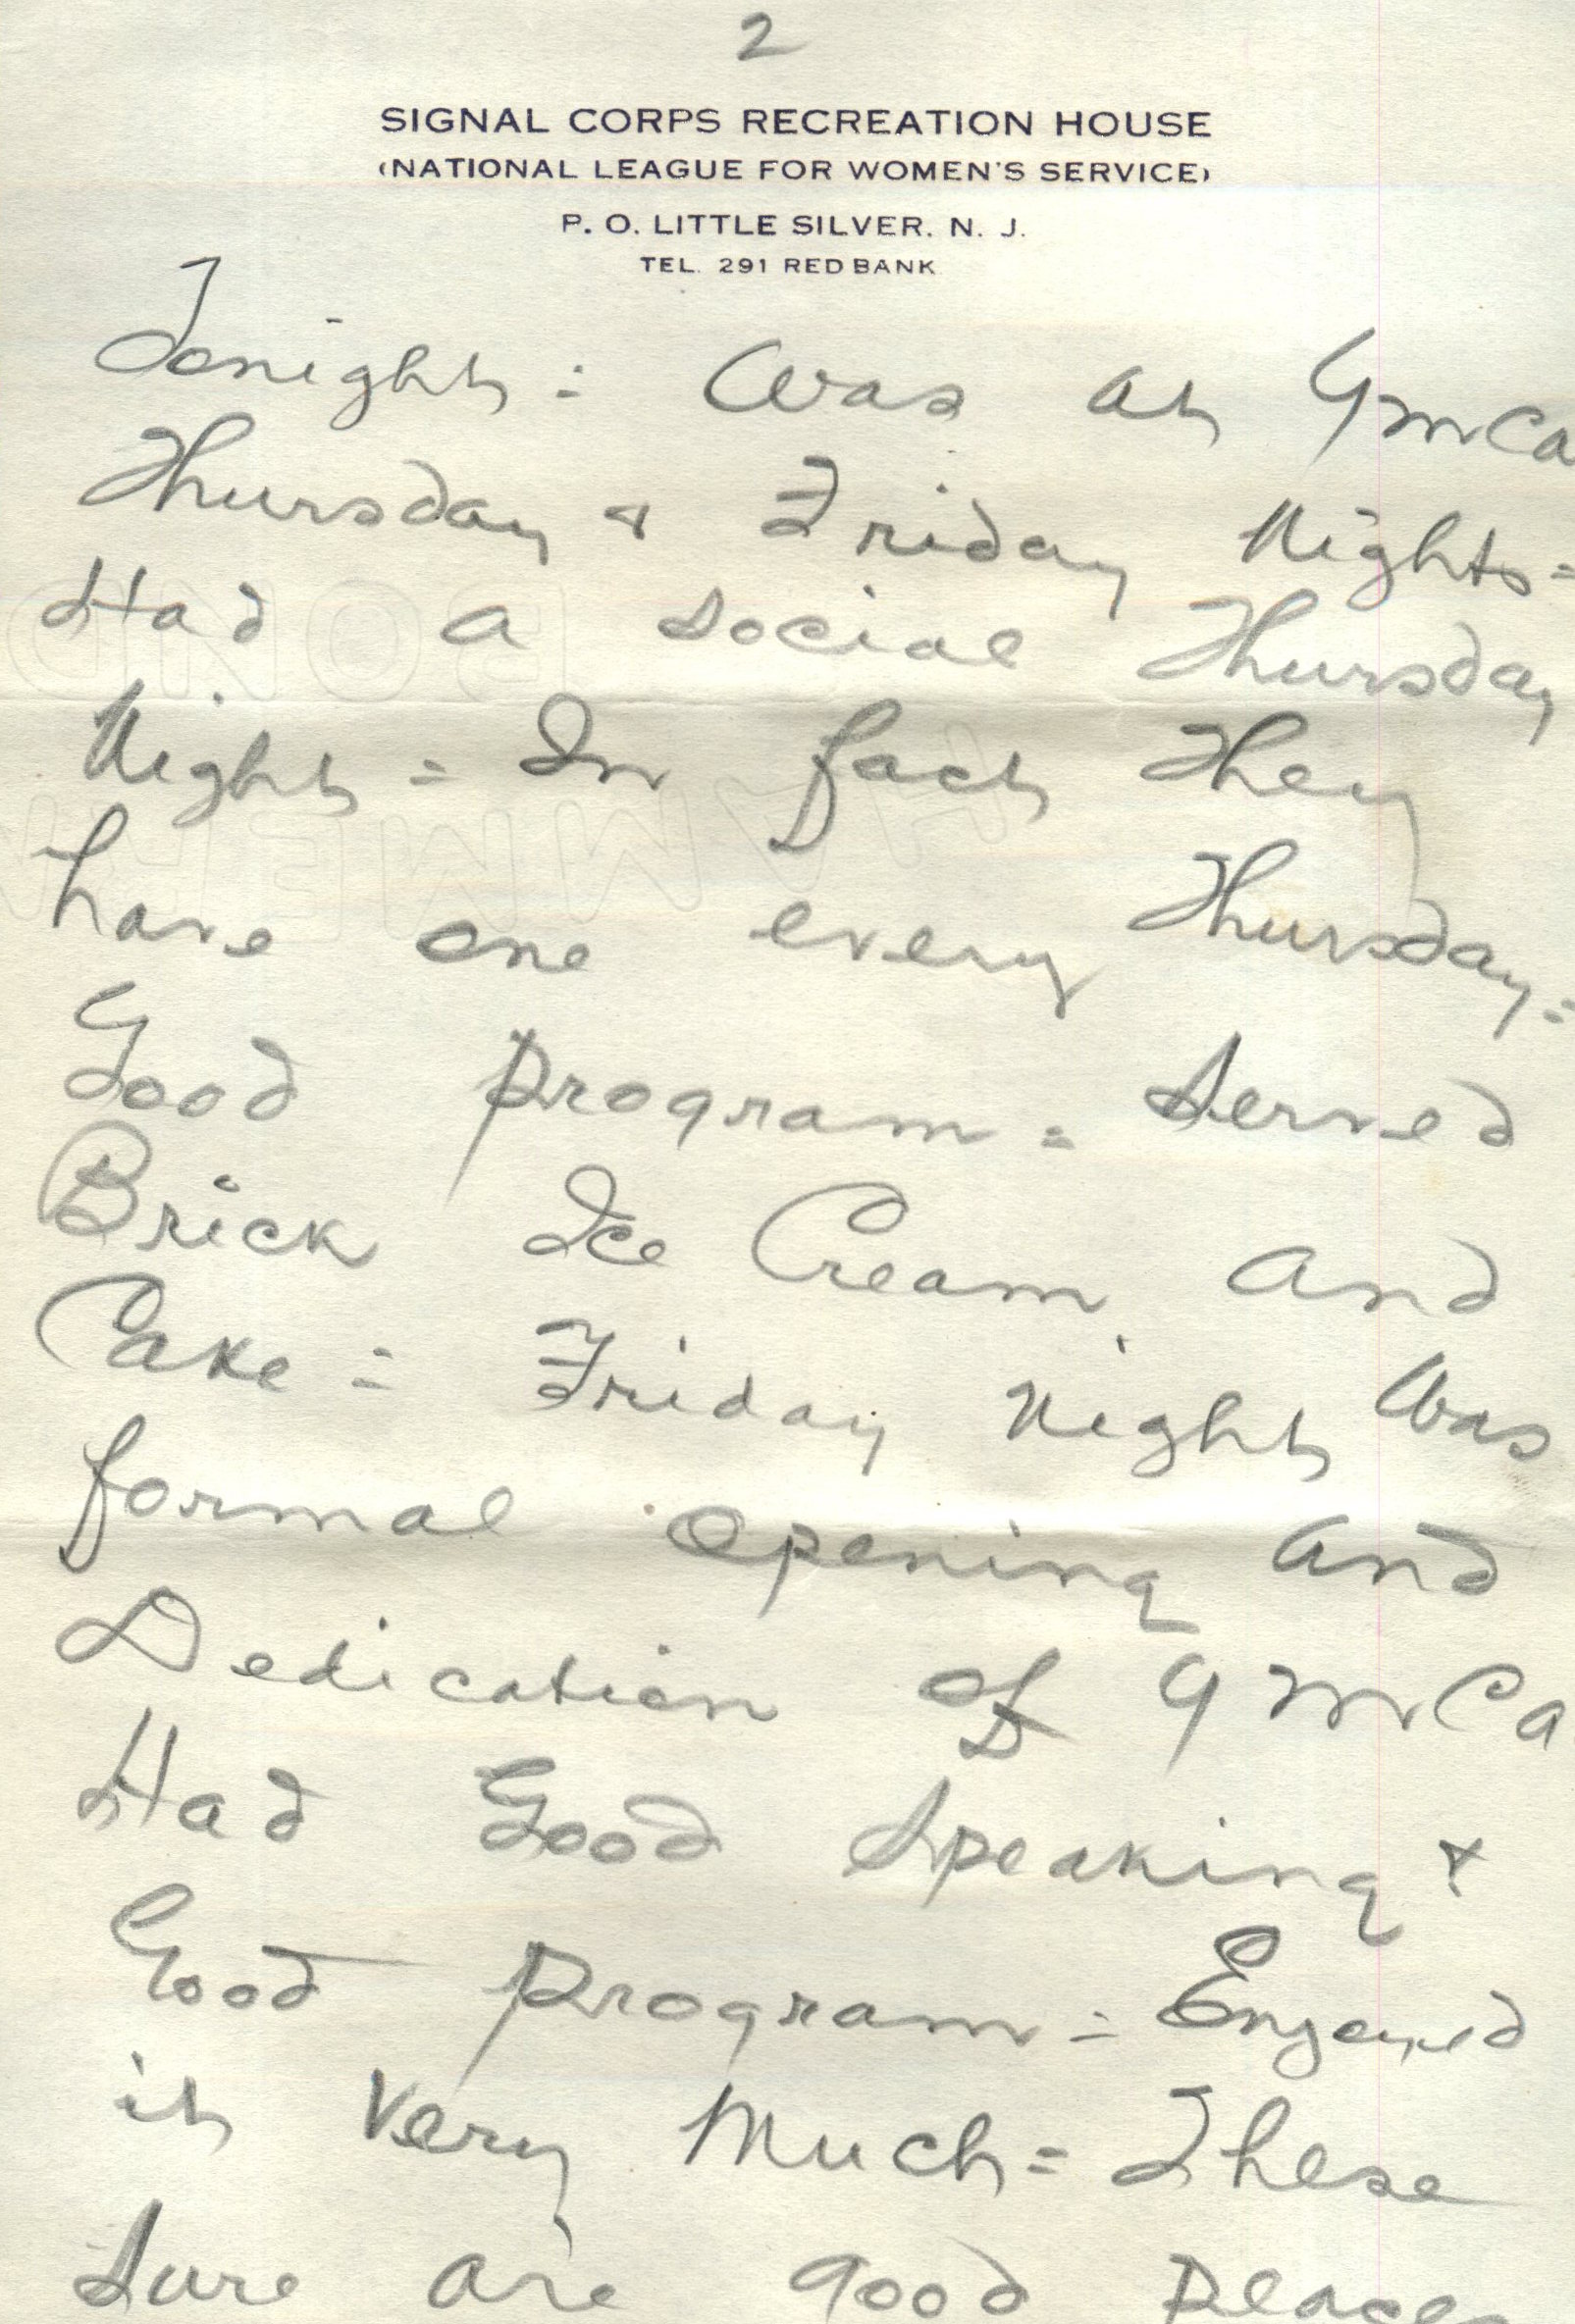 2
SIGNAL CORPS RECREATION HOUSE
(NATIONAL LEAGUE FOR WOMEN'S SERVICE)
P. O. LITTLE SILVER, N. J.
TEL. 291 RED BANK
Tonight = Was at YMCa
Thursday & Friday Nights =
Had a Social Thursday
Night = In fact They
have one every Thursday =
Good program = Served
Brick Ice Cream and
Cake = Friday Night Was
formal opening and
Dedication of YMCa
Had Good Speaking &
Good program = Enjoyed
it Very Much = These
Sure are good places
BOND
HAMMERM